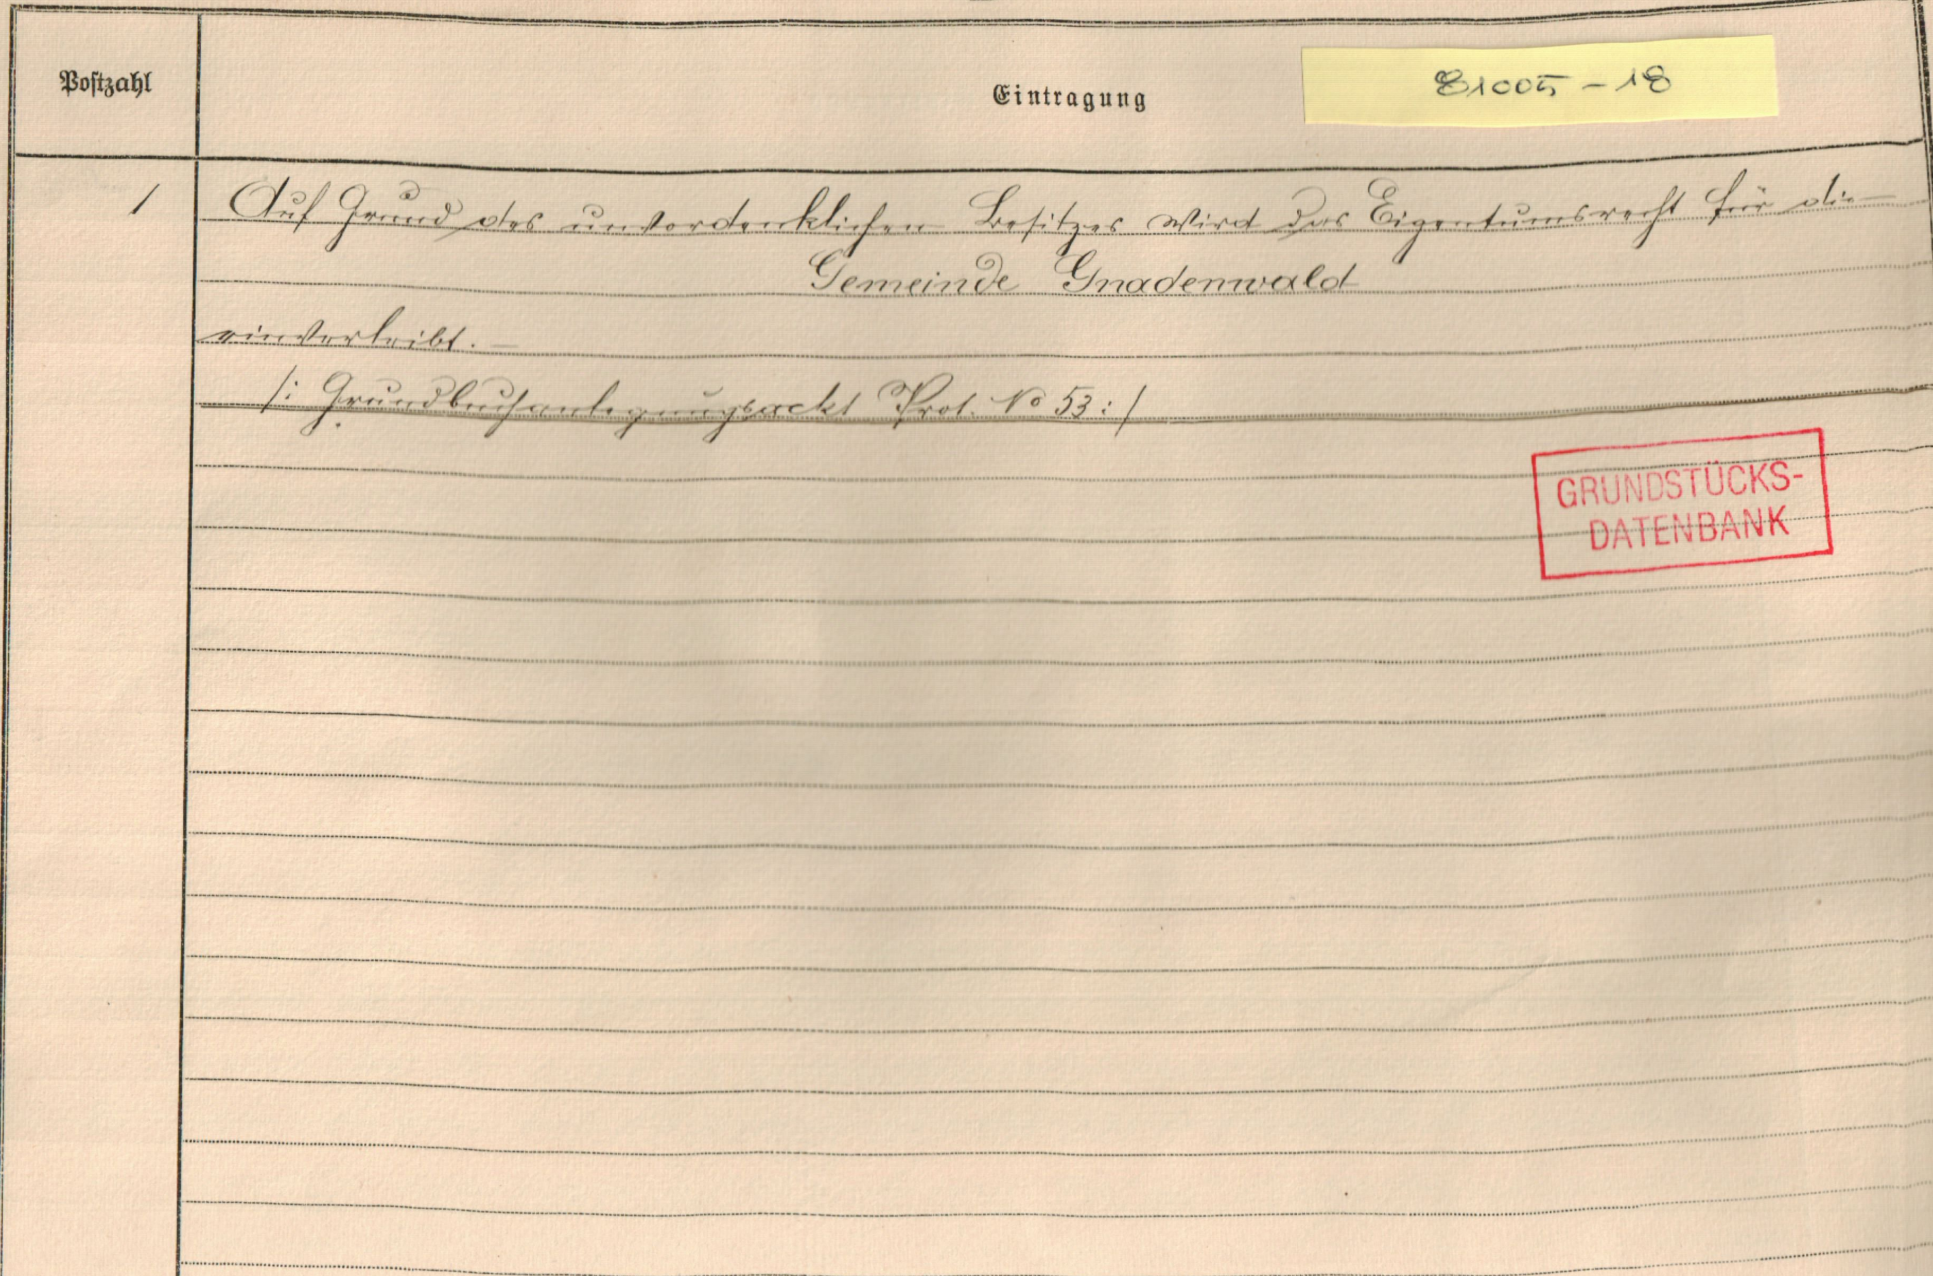 Postzahl
Eintragung
81005-18
1
Auf Grund des unvordenklichen Besitzes wird das Eigentumsrecht für die
Gemeinde Gnadenwald
einverleibt.
/: Grundbuchanlegungsackt Prot. No 53 :/
GRUNDSTÜCKS-
DATENBANK